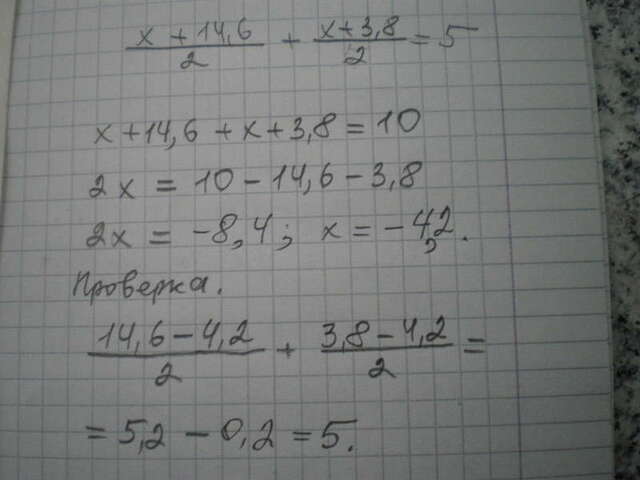 (x + 14,6)/2 + (x + 3,8)/2 = 5
x + 14,6 + x + 3,8 = 10
2x = 10 - 14,6 - 3,8
2x = -8,4; x = -4,2.
Проверка.
(14,6 - 4,2)/2 + (3,8 - 4,2)/2 =
= 5,2 - 0,2 = 5.